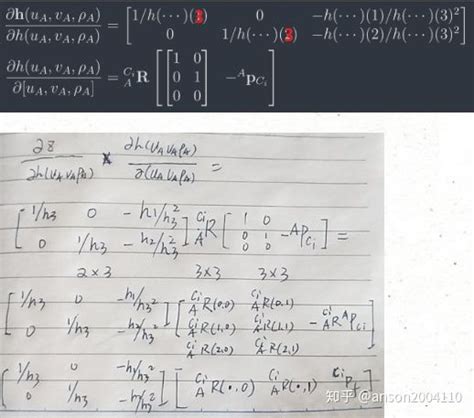 ∂𝐡(u_A, v_A, ρ_A) / ∂h(u_A, v_A, ρ_A) = [ 1/h(···)(3) 0 −h(···)(1)/h(···)(3)² ; 0 1/h(···)(3) −h(···)(2)/h(···)(3)² ]
∂h(u_A, v_A, ρ_A) / ∂[u_A, v_A, ρ_A] = ^{C_i}_A R [ [ 1 0 ; 0 1 ; 0 0 ] −^A p_{C_i} ]
∂z / ∂h(u_A v_A ρ_A) × ∂h(u_A v_A ρ_A) / ∂(u_A v_A ρ_A) =
[ 1/h3 0 −h1/h3² ; 0 1/h3 −h2/h3² ] ^{Ci}_A R [ 1 0 ; 0 1 −^A P_{Ci} ; 0 0 ] =
2×3 3×3 3×3
[ 1/h3 0 −h1/h3² ; 0 1/h3 −h2/h3² ] [ ^{Ci}_A R(0,0) ^{Ci}_A R(0,1) ; ^{Ci}_A R(1,0) ^{Ci}_A R(1,1) −^{Ci}_A R ^A P_{Ci} ; ^{Ci}_A R(2,0) ^{Ci}_A R(2,1) ]
[ 1/h3 0 −h1/h3² ; 0 1/h3 −h2/h3² ] [ ^{Ci}_A R(·,0) ^{Ci}_A R(·,1) ^{Ci} P ]
知乎 @anson2004110